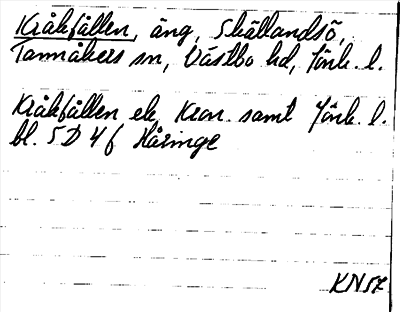 Kråkfållen, äng, Skällandsö,
Tannåkers sn, Västbo hd, Jönk. l.
Kråkfållen ek Kron. samt Jönk. l.
bl. 5 D 4 f Håringe
KN57